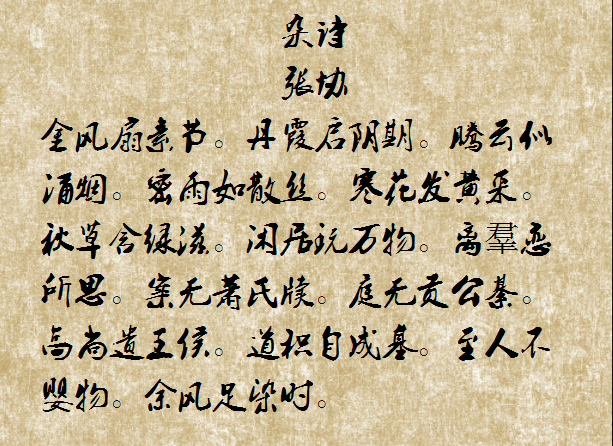 杂诗
张协
金风扇素节。丹霞启阴期。腾云似
涌烟。密雨如散丝。寒花发黄采。
秋草含绿滋。闲居玩万物。离羣恋
所思。案无萧氏牍。庭无贡公綦。
高尚遗王侯。道积自成基。至人不
婴物。余风足染时。